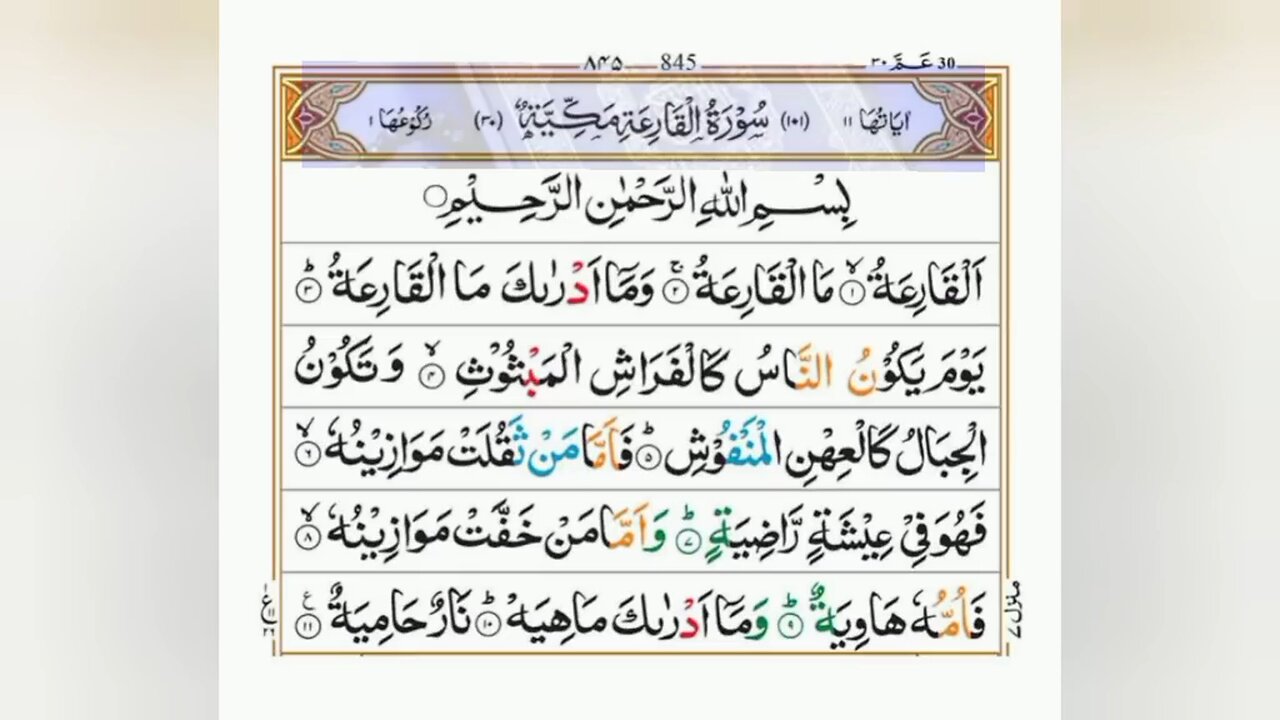 ٨٤٥ 845 ٣٠ عَمَّ 30
اٰيَاتُهَا ١١ (١٠١) سُوْرَةُ الْقَارِعَةِ مَكِّيَّةٌ (٣٠) رُكُوْعُهَا ١
بِسْمِ اللّٰهِ الرَّحْمٰنِ الرَّحِيْمِ
اَلْقَارِعَةُ ۙ﴿١﴾ مَا الْقَارِعَةُ ۚ﴿٢﴾ وَمَاۤ اَدْرٰىكَ مَا الْقَارِعَةُ ؕ﴿٣﴾
يَوْمَ يَكُوْنُ النَّاسُ كَالْفَرَاشِ الْمَبْثُوْثِ ۙ﴿٤﴾ وَتَكُوْنُ
الْجِبَالُ كَالْعِهْنِ الْمَنْفُوْشِ ؕ﴿٥﴾ فَاَمَّا مَنْ ثَقُلَتْ مَوَازِيْنُهٗ ۙ﴿٦﴾
فَهُوَ فِيْ عِيْشَةٍ رَّاضِيَةٍ ؕ﴿٧﴾ وَاَمَّا مَنْ خَفَّتْ مَوَازِيْنُهٗ ۙ﴿٨﴾
فَاُمُّهٗ هَاوِيَةٌ ؕ﴿٩﴾ وَمَاۤ اَدْرٰىكَ مَا هِيَهْ ؕ﴿١٠﴾ نَارٌ حَامِيَةٌ ﴿١١﴾
منزل ٧